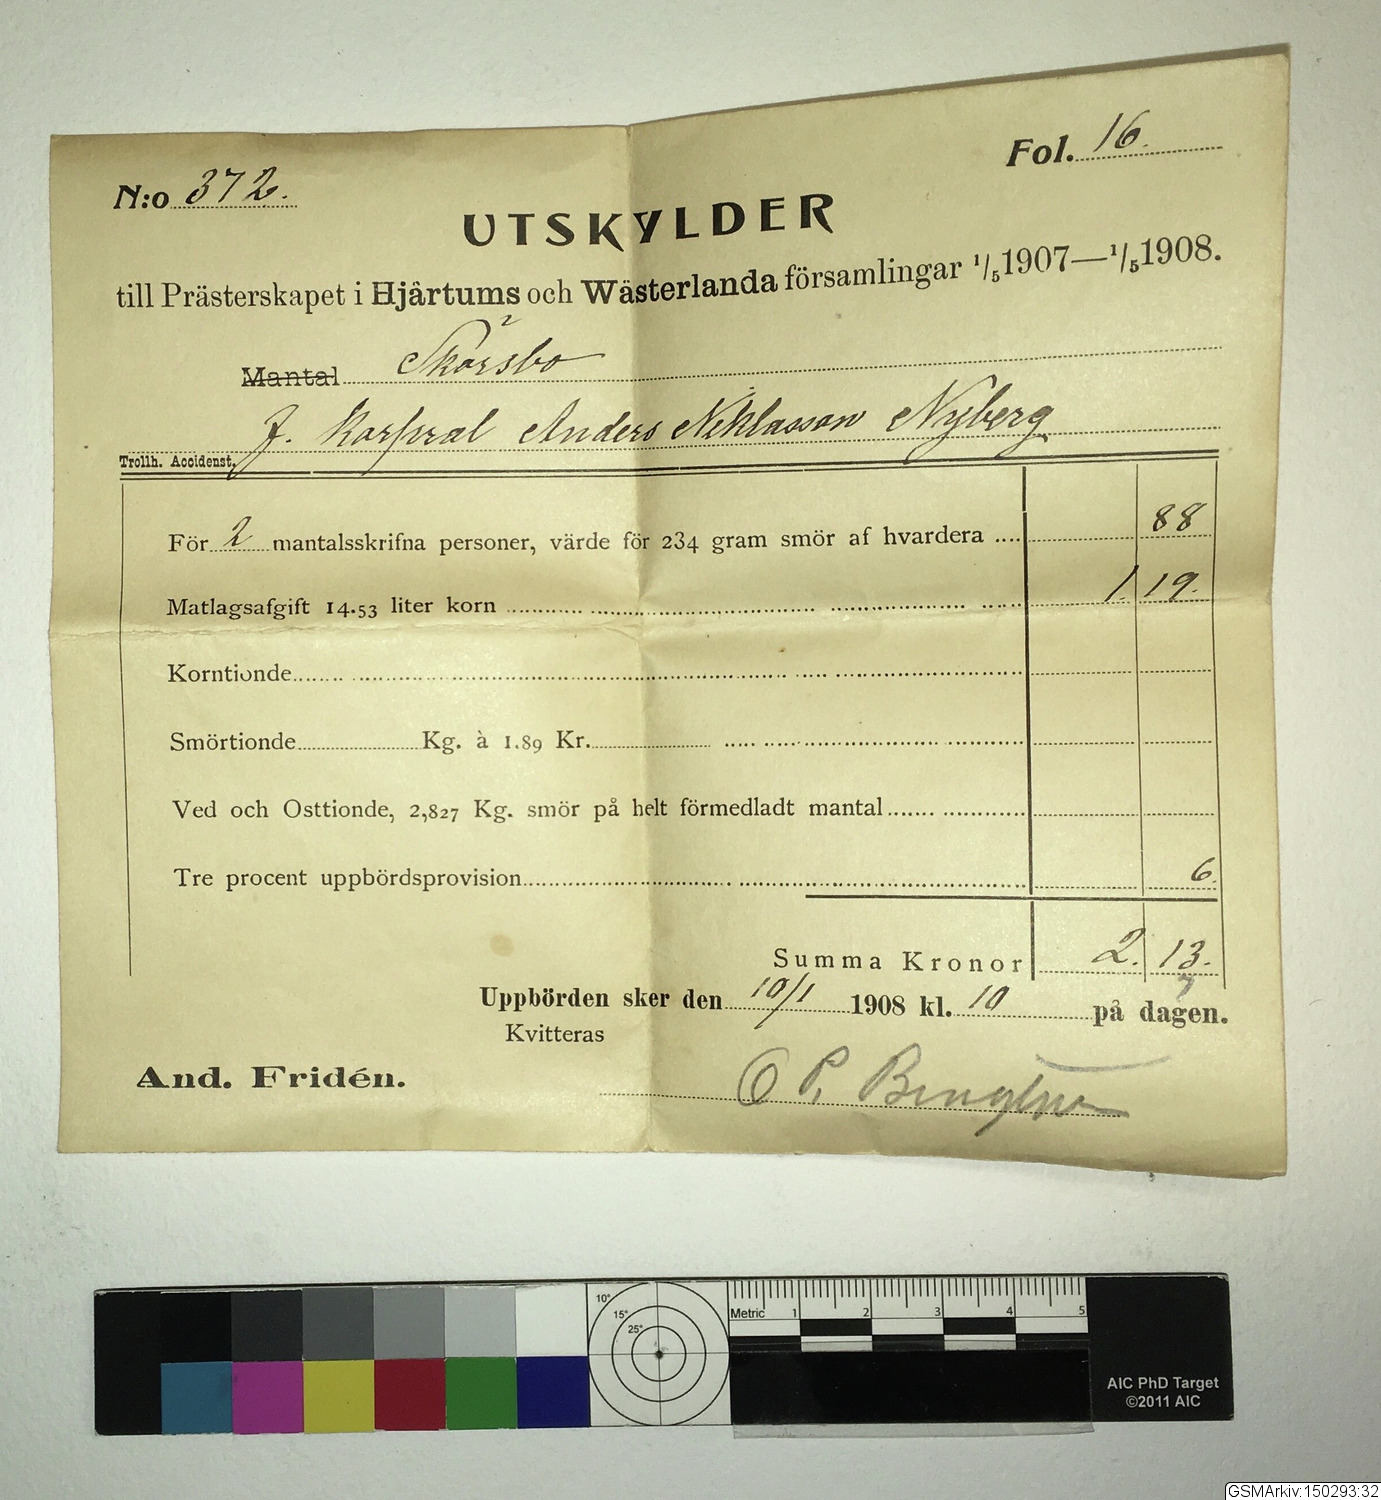 N:o 372.
Fol. 16.
UTSKYLDER
till Prästerskapet i Hjärtums och Wästerlanda församlingar 1/5 1907—1/5 1908.
Mantal Skårsbo
f. Korpral Anders Niklasson Nyberg
Trollh. Accidenst.
För 2 mantalsskrifna personer, värde för 234 gram smör af hvardera .... 88
Matlagsafgift 14.53 liter korn 1. 19.
Korntionde
Smörtionde Kg. à 1.89 Kr.
Ved och Osttionde, 2,827 Kg. smör på helt förmedladt mantal
Tre procent uppbördsprovision 6.
Summa Kronor 2. 13.
Uppbörden sker den 10/1 1908 kl. 10 på dagen.
Kvitteras
And. Fridén.
O P. Bengtson
10° 15° 25°
Metric 1 2 3 4 5
AIC PhD Target
©2011 AIC
GSMArkiv:150293:32